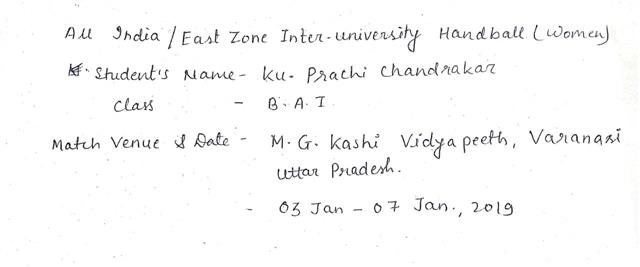 All India / East Zone Inter-university Handball (Women)
Student's Name - Ku. Prachi Chandrakar
Class - B.A.I
Match Venue & Date - M.G. Kashi Vidyapeeth, Varanasi
Uttar Pradesh.
- 03 Jan - 07 Jan., 2019